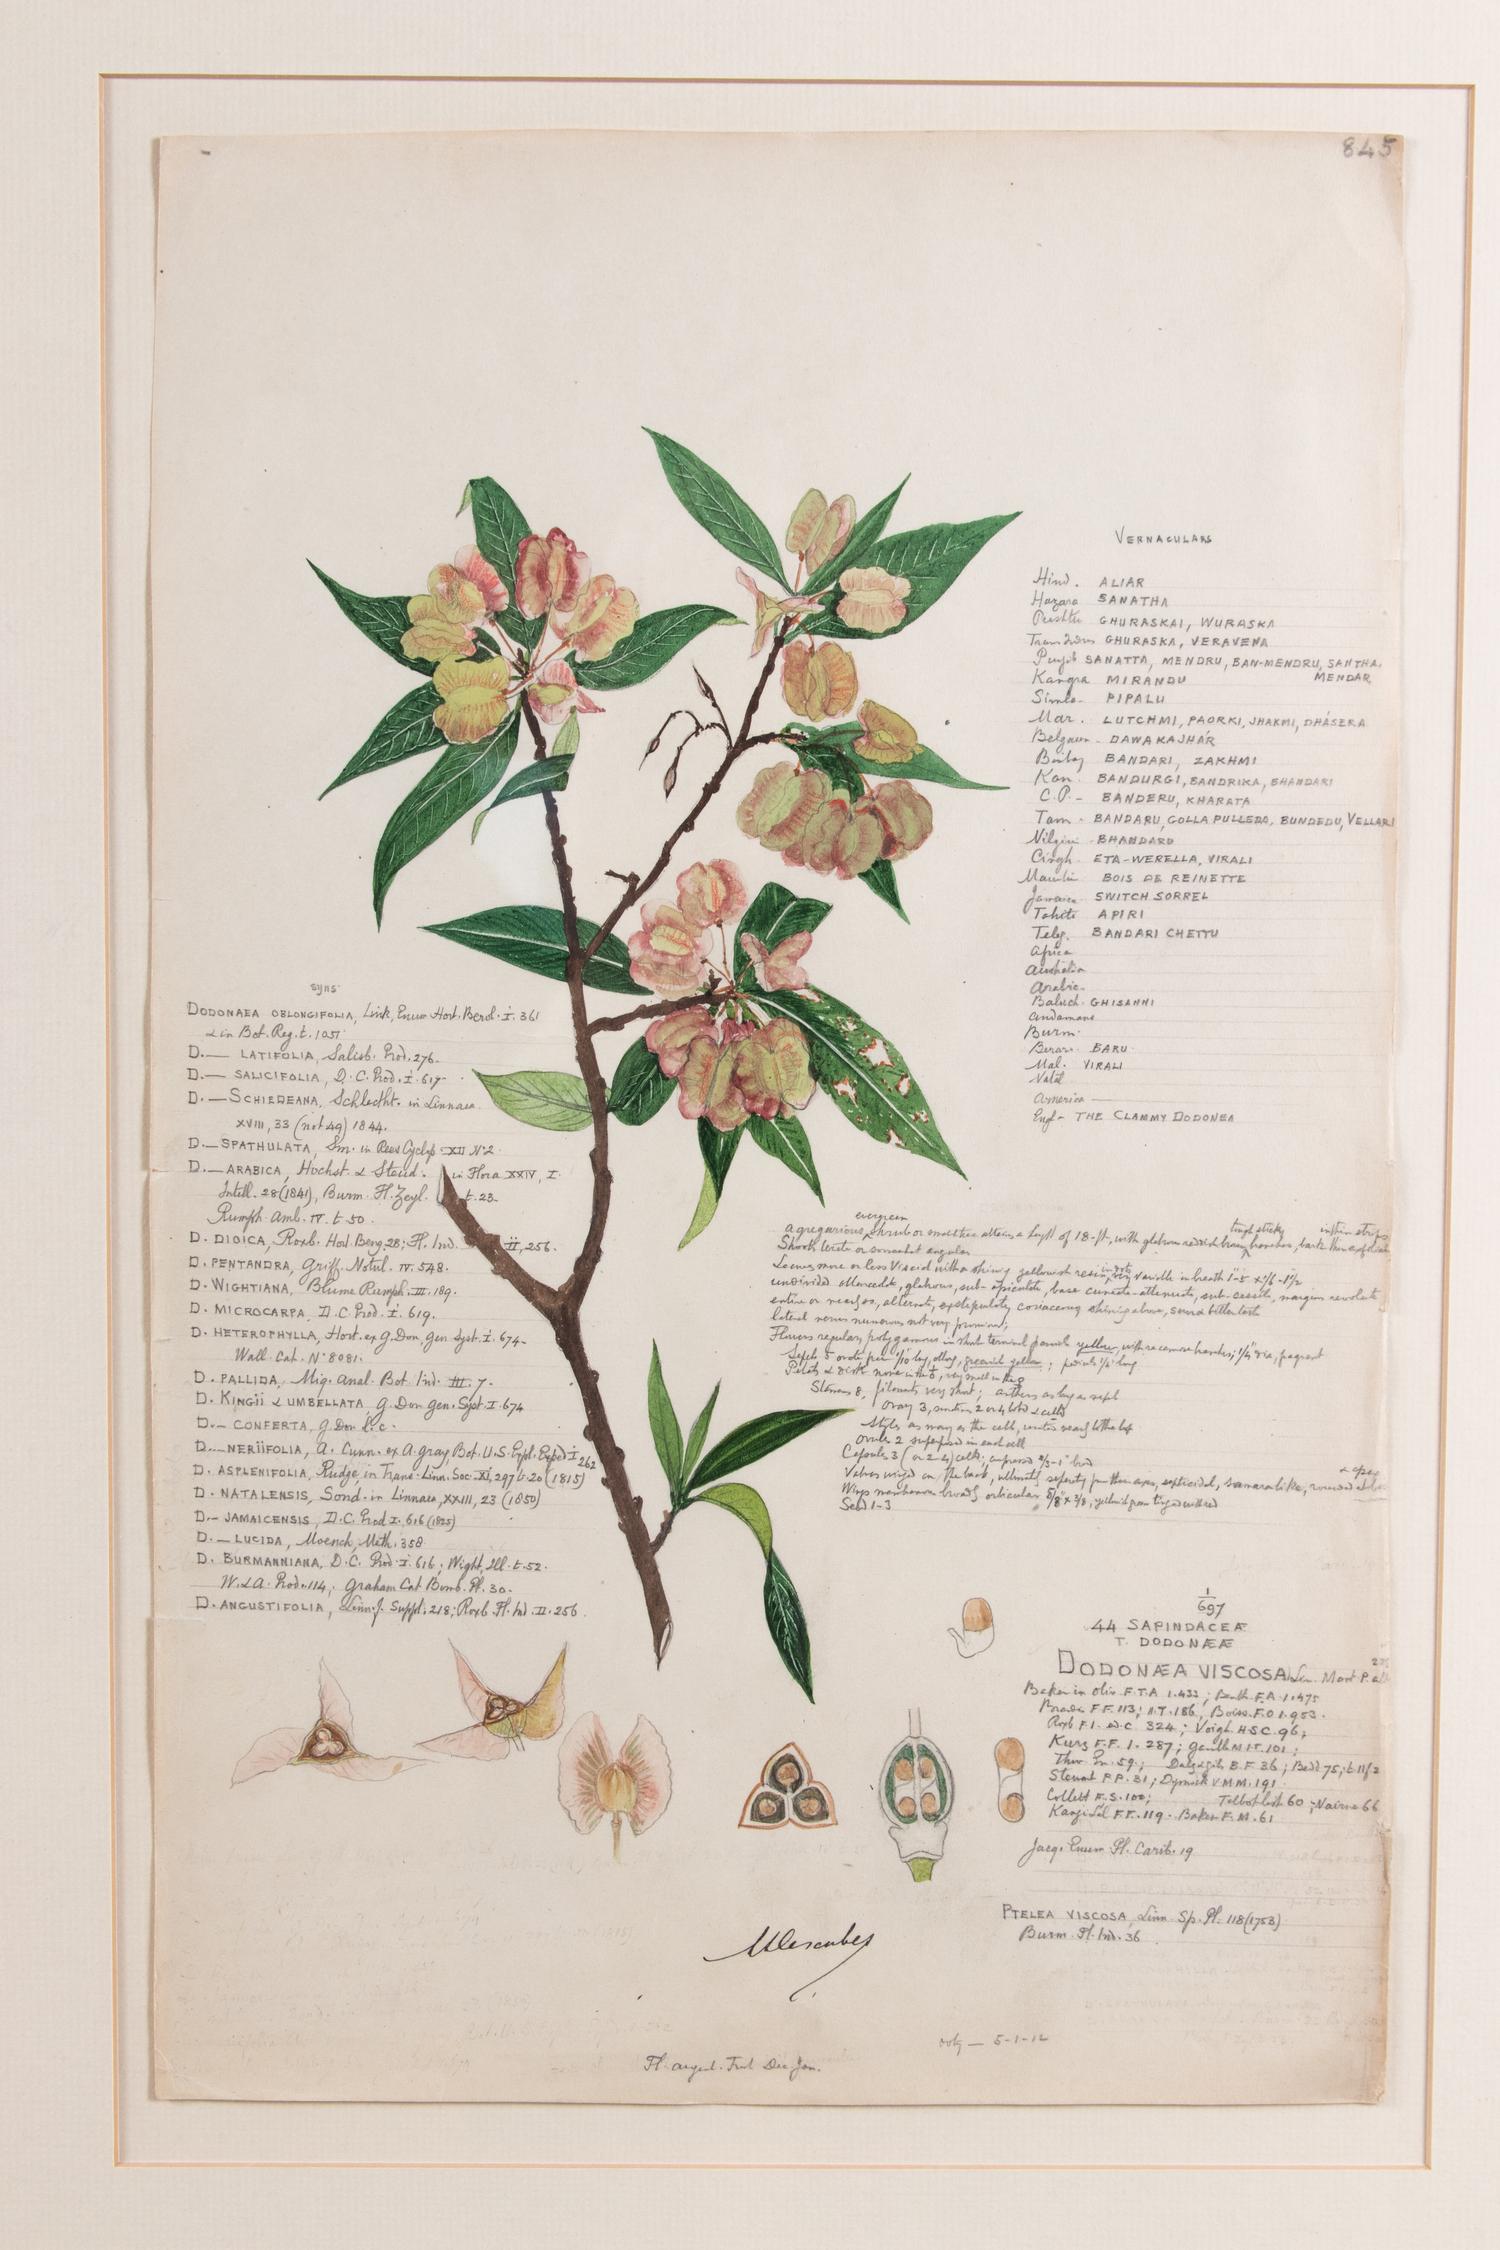 845
VERNACULARS
Hind. ALIAR
Hazara SANATHA
Pushtu GHURASKAI, WURASKA
GHURASKA, VERAVENA
Punjab SANATTA, MENDRU, BAN-MENDRU, SANTHA,
MENDAR
Kangra MIRANDU
Simla- PIPALU
Mar. LUTCHMI, PAORKI, JHAKMI, DHÁSERA
Belgaum - DAWA KAJHÁR
Bombay BANDARI, ZAKHMI
Kan. BANDURGI, BANDRIKA, BHANDARI
C.P.- BANDERU, KHARATA
Tam. BANDARU, GOLLA PULLEDA, BUNDEDU, VELLARI
Nilgiri - BHANDARU
Cingh. ETA-WERELLA, VIRALI
BOIS DE REINETTE
Jamaica SWITCH SORREL
Tahiti APIRI
Telg. BANDARI CHETTU
Africa
Australia
Arabia-
Baluch. GHISANNI
Andamans
Burm.
Berar. BARU
Mal. VIRALI
Natal
America
Engl- THE CLAMMY DODONEA
Syns
DODONAEA OBLONGIFOLIA, Link, Enum Hort. Berol. I. 361
& in Bot. Reg. t. 1051
D.— LATIFOLIA, Salisb. Prod. 276-
D.— SALICIFOLIA, D.C. Prod. I. 617-
D.— SCHIEDEANA, Schlecht. in Linnaea
XVIII, 33 (not 49) 1844.
D.— SPATHULATA, Sm. in Rees Cyclop XII No 2.
D.— ARABICA, Hochst & Steud. in Flora XXIV, I.
Intell. 28 (1841), Burm. Fl. Zeyl. t. 23-
Rumph. Amb. IV. t. 50.
D. DIOICA, Roxb. Hort Beng. 28; Fl. Ind. II, 256.
D. PENTANDRA, Griff. Notul. IV. 548.
D. WIGHTIANA, Blume Rumph. III. 189.
D. MICROCARPA, D.C Prod. I. 619.
D. HETEROPHYLLA, Hort. ex G. Don, gen Syst. I. 674-
Wall. Cat. No 8081.
D. PALLIDA, Miq. Anal. Bot. Ind. III. 7.
D. KINGII & UMBELLATA, G. Don gen. Syst. I. 674
D.- CONFERTA, G. Don l. c.
D.— NERIIFOLIA, A. Cunn. ex A. Gray, Bot. U.S. Expl. Exped i 262
D. ASPLENIFOLIA, Rudge, in Trans. Linn. Soc. XI, 297 t. 20 (1815)
D. NATALENSIS, Sond. in Linnaea, XXIII, 23 (1850)
D.- JAMAICENSIS, D.C. Prod I. 616 (1825)
D.— LUCIDA, Moench, Meth. 358
D. BURMANNIANA, D.C. Prod. I. 616; Wight, Ill. t. 52.
W. & A. Prod. 114; Graham Cat Bomb. Pl. 30.
D. ANGUSTIFOLIA, Linn. f. Suppl. 218; Roxb Fl. Ind II. 256
evergreen
A gregarious shrub or small tree attains a height of 18-ft, with glabrous reddish brown branches, bark thin
tough sticky in thin strips
Shoots terete or somewhat angular
Leaves more or less viscid with a shiny yellowish resin, variable in breadth
undivided, glabrous, sub-apiculate, base cuneate-attenuate, sub-sessile, margins revolute
entire or nearly so, alternate, exstipulate, coriaceous shining above, sour & bitter taste
lateral nerves numerous not very prominent,
Flowers regular, polygamous in short terminal panicles yellow, with racemose branches; 1/4" dia, fragrant
Sepals 5 1/10 long, oblong, greenish yellow; pedicels 1/2" long
Petals & disk none in the ♂, very small in the ♀
Stamens 8, filaments very short; anthers as long as sepal
Ovary 3, sometimes 2 or 4 lobed & celled
Styles as many as the cells, united nearly to the top
Ovules 2 superposed in each cell
Capsules 3 (or 2-4) celled; compressed 2/3-1" broad
& apex
Valves winged on the back, ultimately separating from the axes, septicidal, samara like, rounded
Wings membranous broadly orbicular 5/8" x 3/8, yellowish green tinged with red
Seed 1-3
1/697
44 SAPINDACEÆ
T. DODONÆÆ
DODONÆA VISCOSA Lin. Mant P.
Baker in Oliv. F.T.A 1.433; Benth F.A. 1.475
Brandis F.F. 113; H.T. 186, Boiss. F.O 1.953.
Roxb F.I. ed. C. 324; Voigt. H.S.C. 96;
Kurz F.F. 1. 287; Gamble M.I.T. 101;
Thw. En. 59; Dalz & Gib B.F. 36; Bedd 75, t. 11 f 2
Stewart P.P. 31; Dymock V.M.M. 191
Collett F.S. 100; Talbot List 60; Nairne 66
Kanjilal F.F. 119. Baker F.M. 61
Jacq. Enum Pl. Carib. 19
PTELEA VISCOSA, Linn. Sp. Pl. 118 (1753)
Burm. Fl. Ind. 36
Ooty — 5-1-12
Fl. August. Fruit Dec Jan.